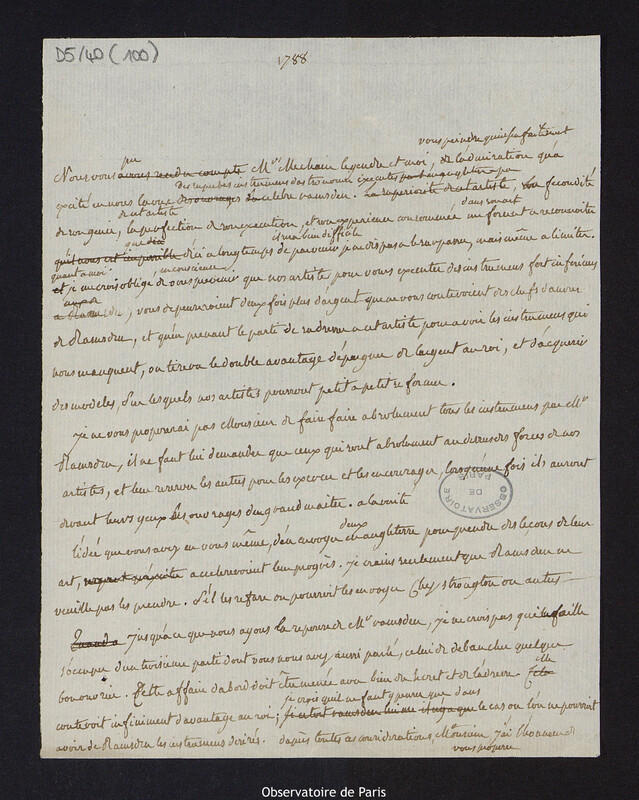 D5/40 (100)
1788
vous peindre qu'imparfaitement
pu
Nous vous avons rendu compte Mrs Mechain legendre et moi, de l'admiration qu'a
des superbes instrumens d'astronomie executés
excité en nous la vue des ouvrages du celebre ramsden. La superiorité de cet artiste, son fécondité
de cet artiste dans son art
de son genie, la perfection de son execution, et son experience consommée nous forcent a reconnoitre
que dis il sera bien difficile
qu'il nous est impossible d'ici a longtemps de parvenir je ne dis pas a le surpasser, mais même a l'imiter.
quant a moi en conscience
et je me crois obligé de vous prevenir que nos artistes pour vous executer des instrumens fort inferieurs
a ceux
a Ramsden, vous depenseroient deux fois plus d'argent que ne vous couteroient des chefs d'œuvre
de Ramsden, et qu'en prenant le parti de s'adresser a cet artiste pour avoir les instrumens qui
nous manquent, on tirera le double avantage d'épargner de l'argent au roi, et d'acquerir
des modeles, sur lesquels nos artistes pourront petit a petit se former.
Je ne vous proposerai pas Monsieur de faire faire absolument tous les instrumens par Mr
Ramsden, il ne faut lui demander que ceux qui sont absolument au dessus des forces de nos
artistes, et leur reserver les autres pour les exercer et les encourager, lorsqu'une fois ils auront
devant leurs yeux les ouvrages du grand maitre. a la verité
l'idée que vous avez eu vous même, d'en envoyer deux en angleterre pour prendre des leçons de leur
art, accelereroient leur progrès. je crains seulement que Ramsden ne
veuille pas les prendre. S'il les refuse on pourroit les envoyer chez Stroughton ou autres
Quand a Jusqu'a ce que nous ayons la reponse de Mr ramsden, je ne crois pas qu'il faille
s'occuper d'un troisieme parti dont vous nous avez aussi parlé, celui de debaucher quelque
bon ouvrier. Cette affaire d'abord doit être menée avec bien du secret et de l'adresse elle
je crois qu'il ne faut y penser que dans
couteroit infiniment d'avantage au roi; le cas ou l'on ne pourroit
avoir de Ramsden les instrumens desirés. d'après toutes ces considerations, Monsieur j'ai l'honneur de
vous proposer
OBSERVATOIRE DE PARIS
Observatoire de Paris